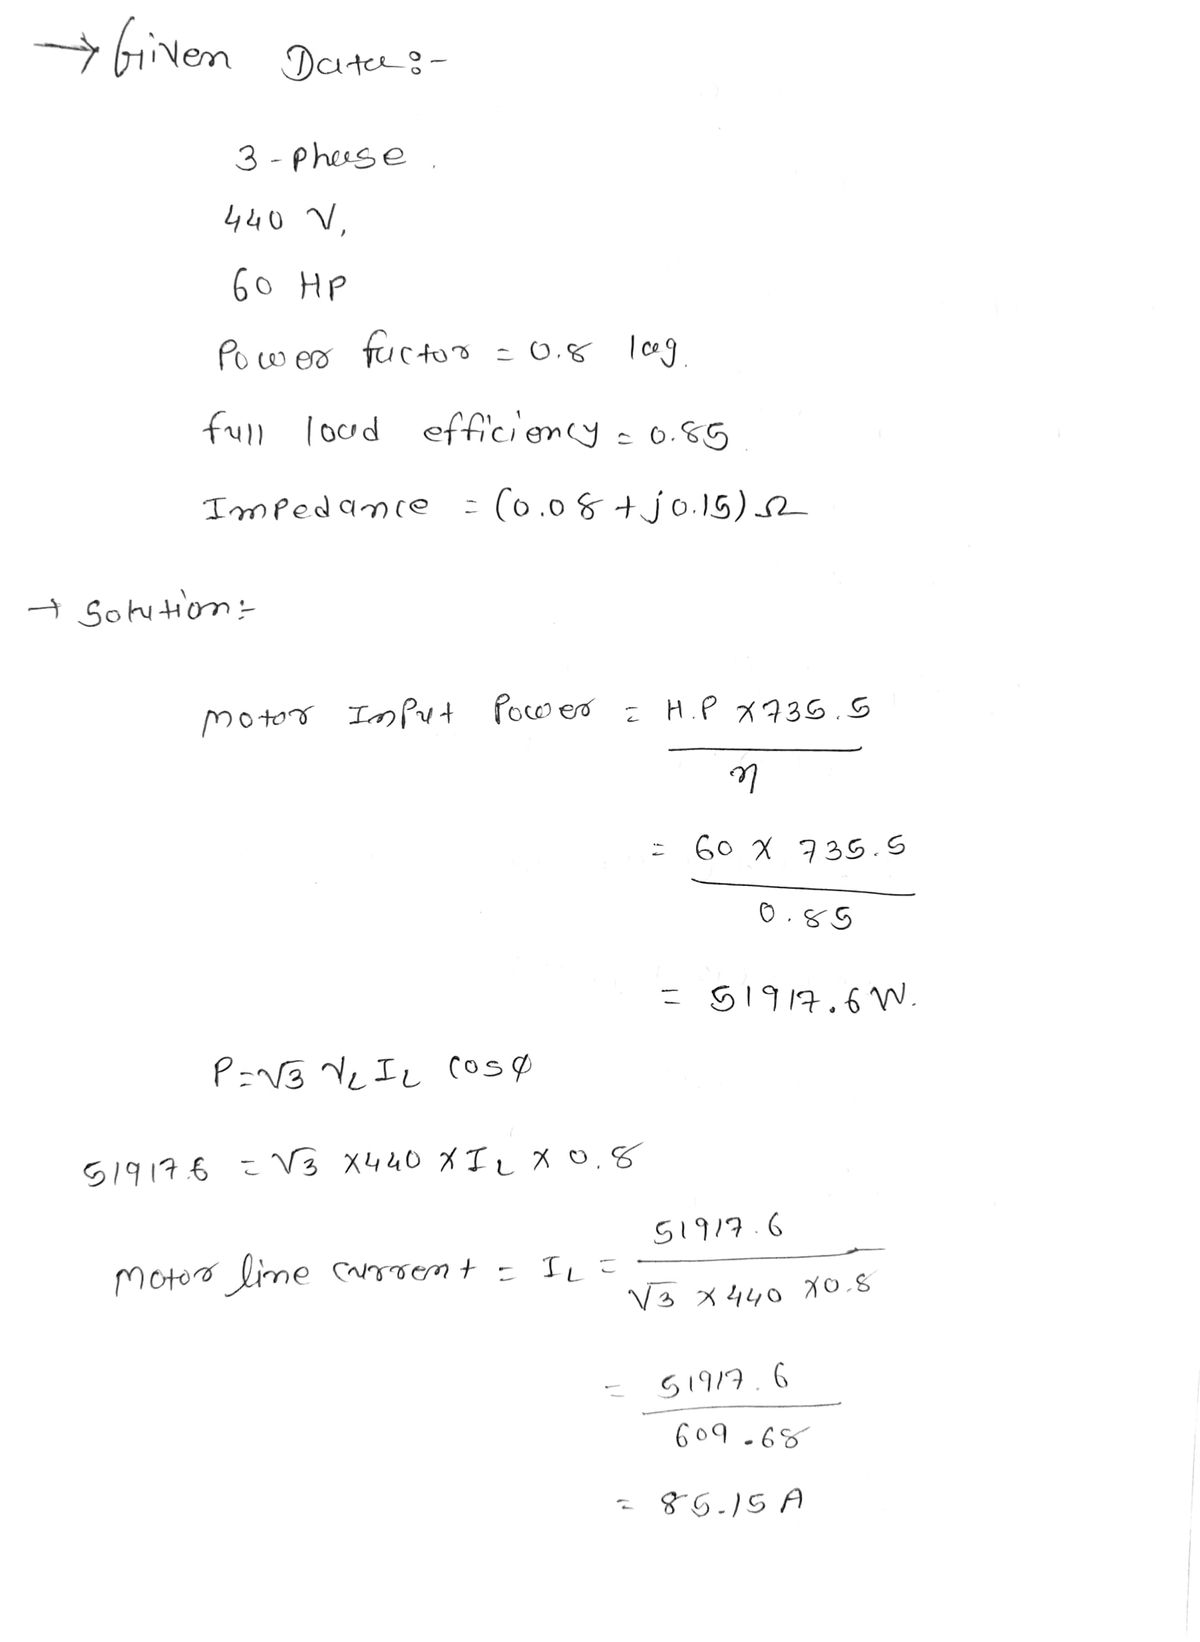 → Given Data :-
3 - phase .
440 V,
60 HP
Power factor = 0.8 lag.
full load efficiency = 0.85
Impedance = (0.08 + j0.15) Ω
→ Solution :-
Motor Input Power = H.P × 735.5
η
= 60 × 735.5
0.85
= 51917.6 W.
P = √3 VL IL cos φ
51917.6 = √3 × 440 × IL × 0.8
51917.6
Motor line current = IL =
√3 × 440 × 0.8
= 51917.6
609.68
= 85.15 A